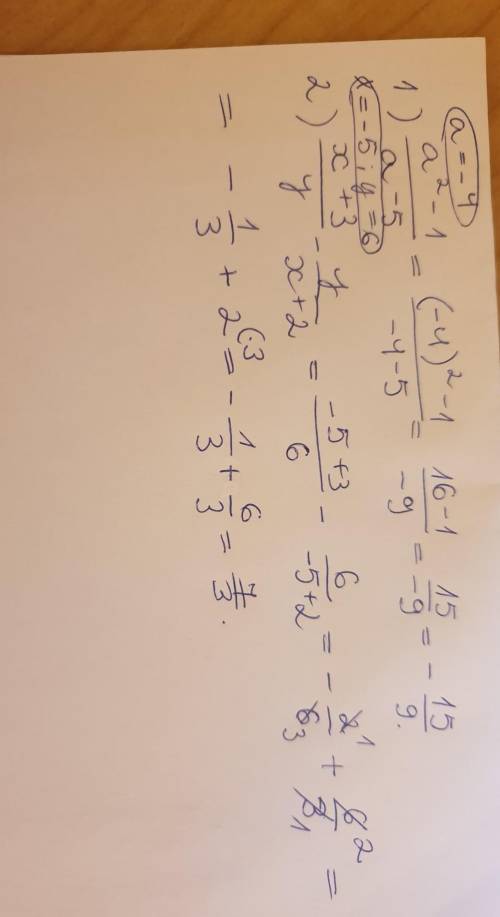 a = -4
1) (a² - 1)/(a - 5) = ((-4)² - 1)/(-4 - 5) = (16 - 1)/(-9) = 15/(-9) = -15/9.
x = -5; y = 6
2) (x + 3)/y - y/(x + 2) = (-5 + 3)/6 - 6/(-5 + 2) = -2¹/6₃ + 6²/3₁ =
= -1/3 + 2(·3 = -1/3 + 6/3 = 7/3.